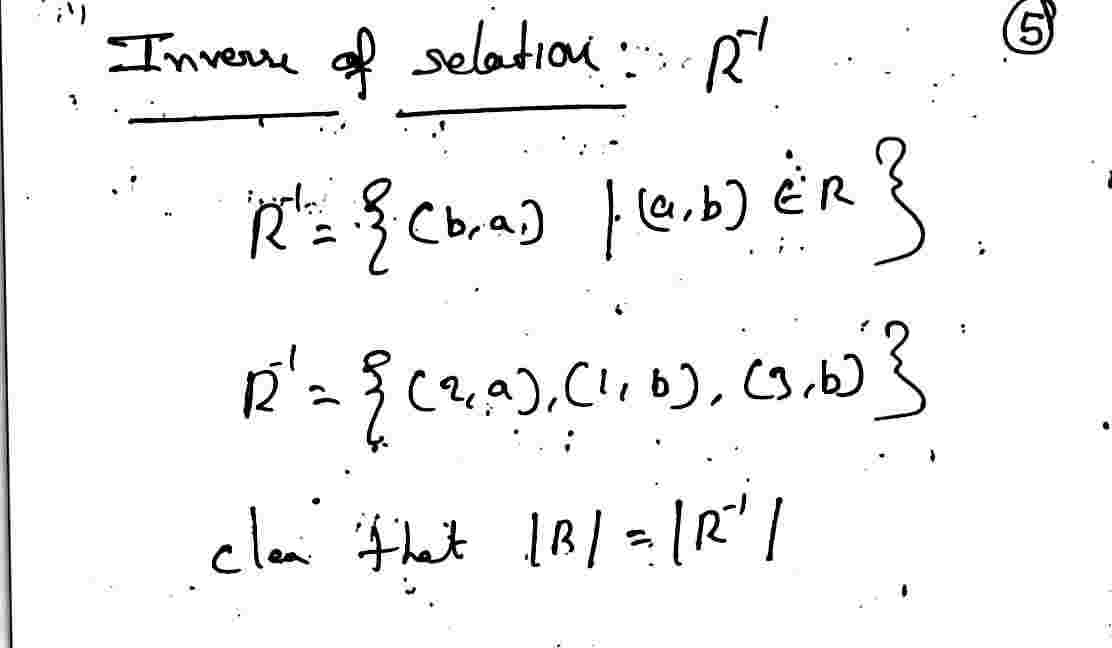 ⑤
Inverse of relation :- R⁻¹
R⁻¹ = { (b, a) | (a, b) ∈ R }
R⁻¹ = { (2, a), (1, b), (3, b) }
clear that |R| = |R⁻¹|